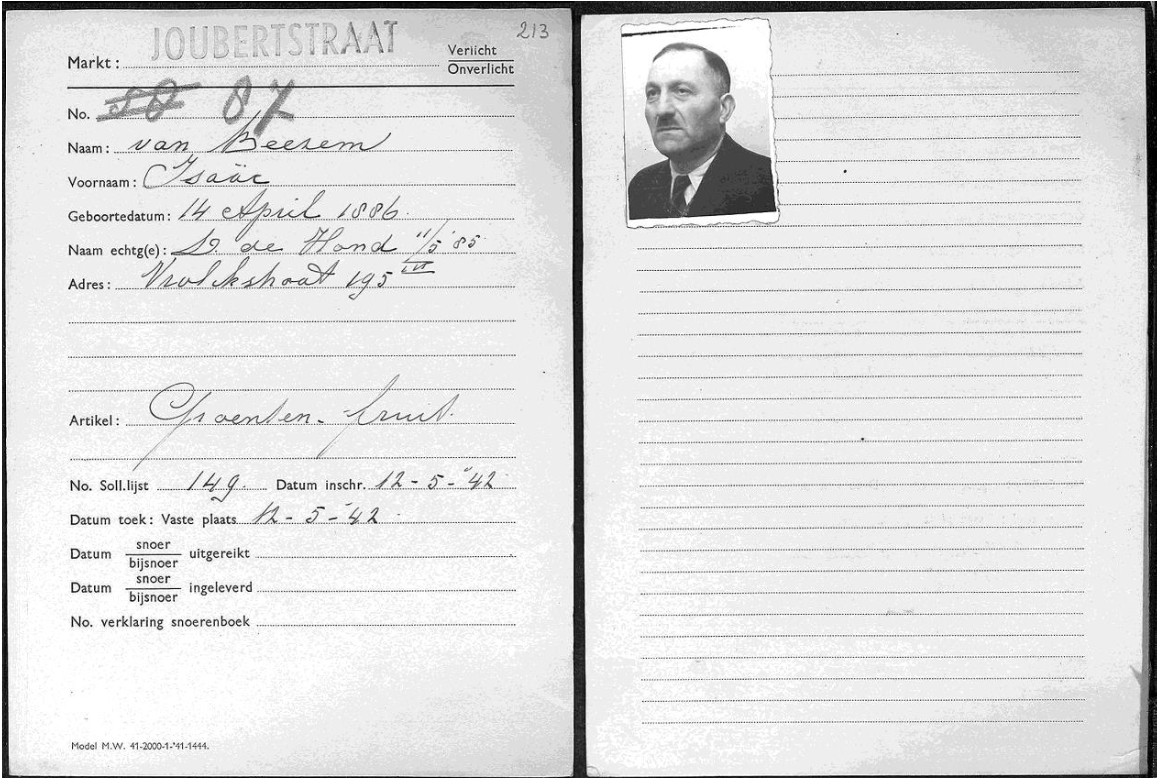 213
Markt: JOUBERTSTRAAT Verlicht
Onverlicht
No. 87
Naam: van Beezem
Voornaam: Isaäc
Geboortedatum: 14 April 1886.
Naam echtg(e): de Hond 11/5 '85
Adres: Vrolikstraat 195 III
Artikel: Groenten-fruit.
No. Soll.lijst 149. Datum inschr. 12-5-'42
Datum toek: Vaste plaats 12-5-'42.
Datum snoer
bijsnoer uitgereikt
Datum snoer
bijsnoer ingeleverd
No. verklaring snoerenboek
Model M.W. 41-2000-1-'41-1444.